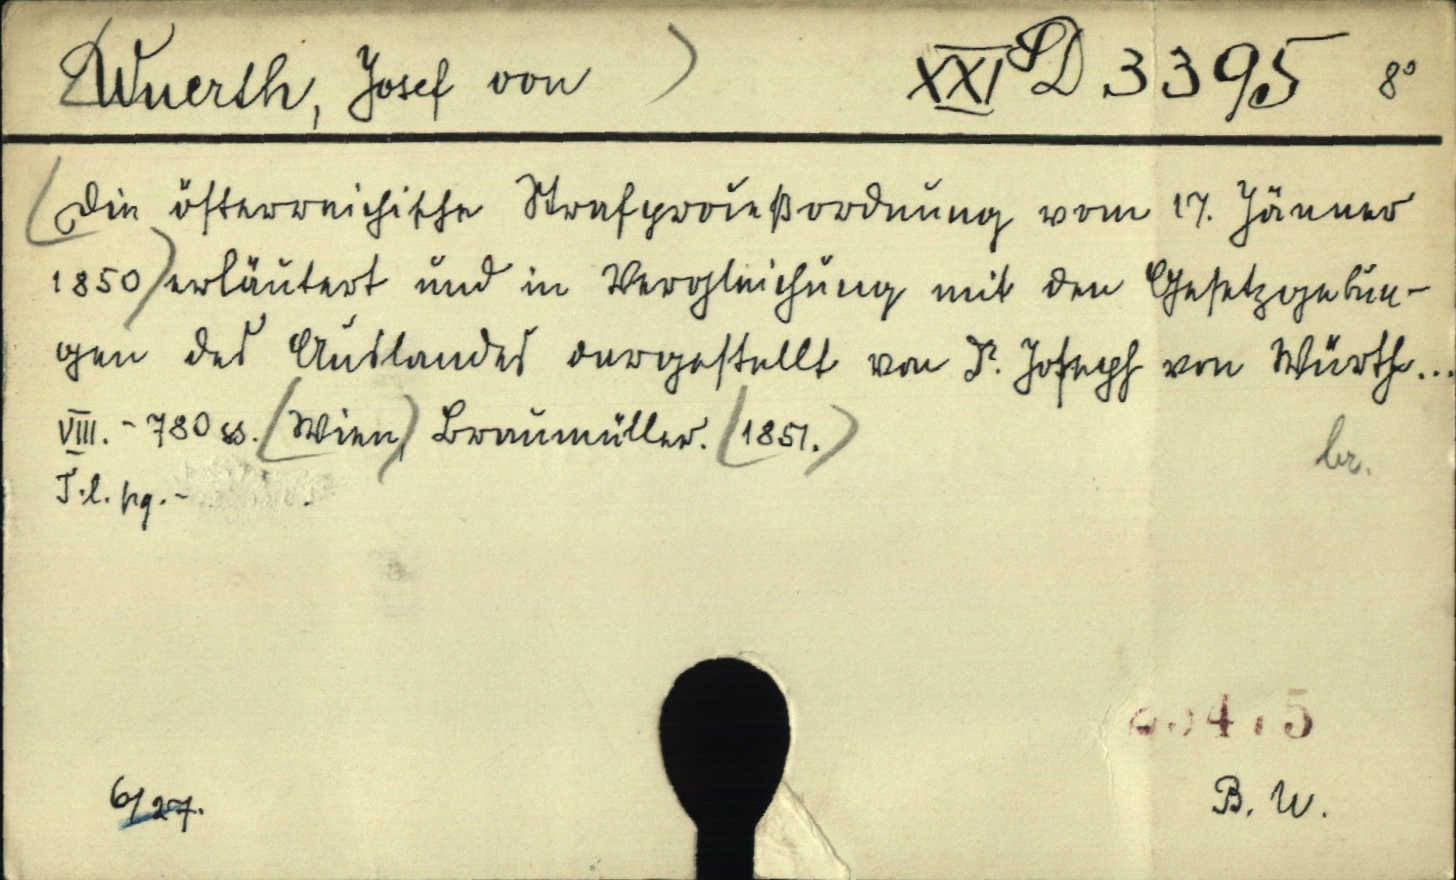 Wuerth, Josef von
XXI PD 3395 8°
(Die österreichische Strafproceßordnung vom 17. Jänner
1850) erläutert und in Vergleichung mit den Gesetzgebun-
gen des Auslandes dargestellt von Dr. Joseph von Würth...
VIII. - 780 ss. (Wien), Braumüller. (1851.)
br.
T. l. pg. -
B. W.
6/27.